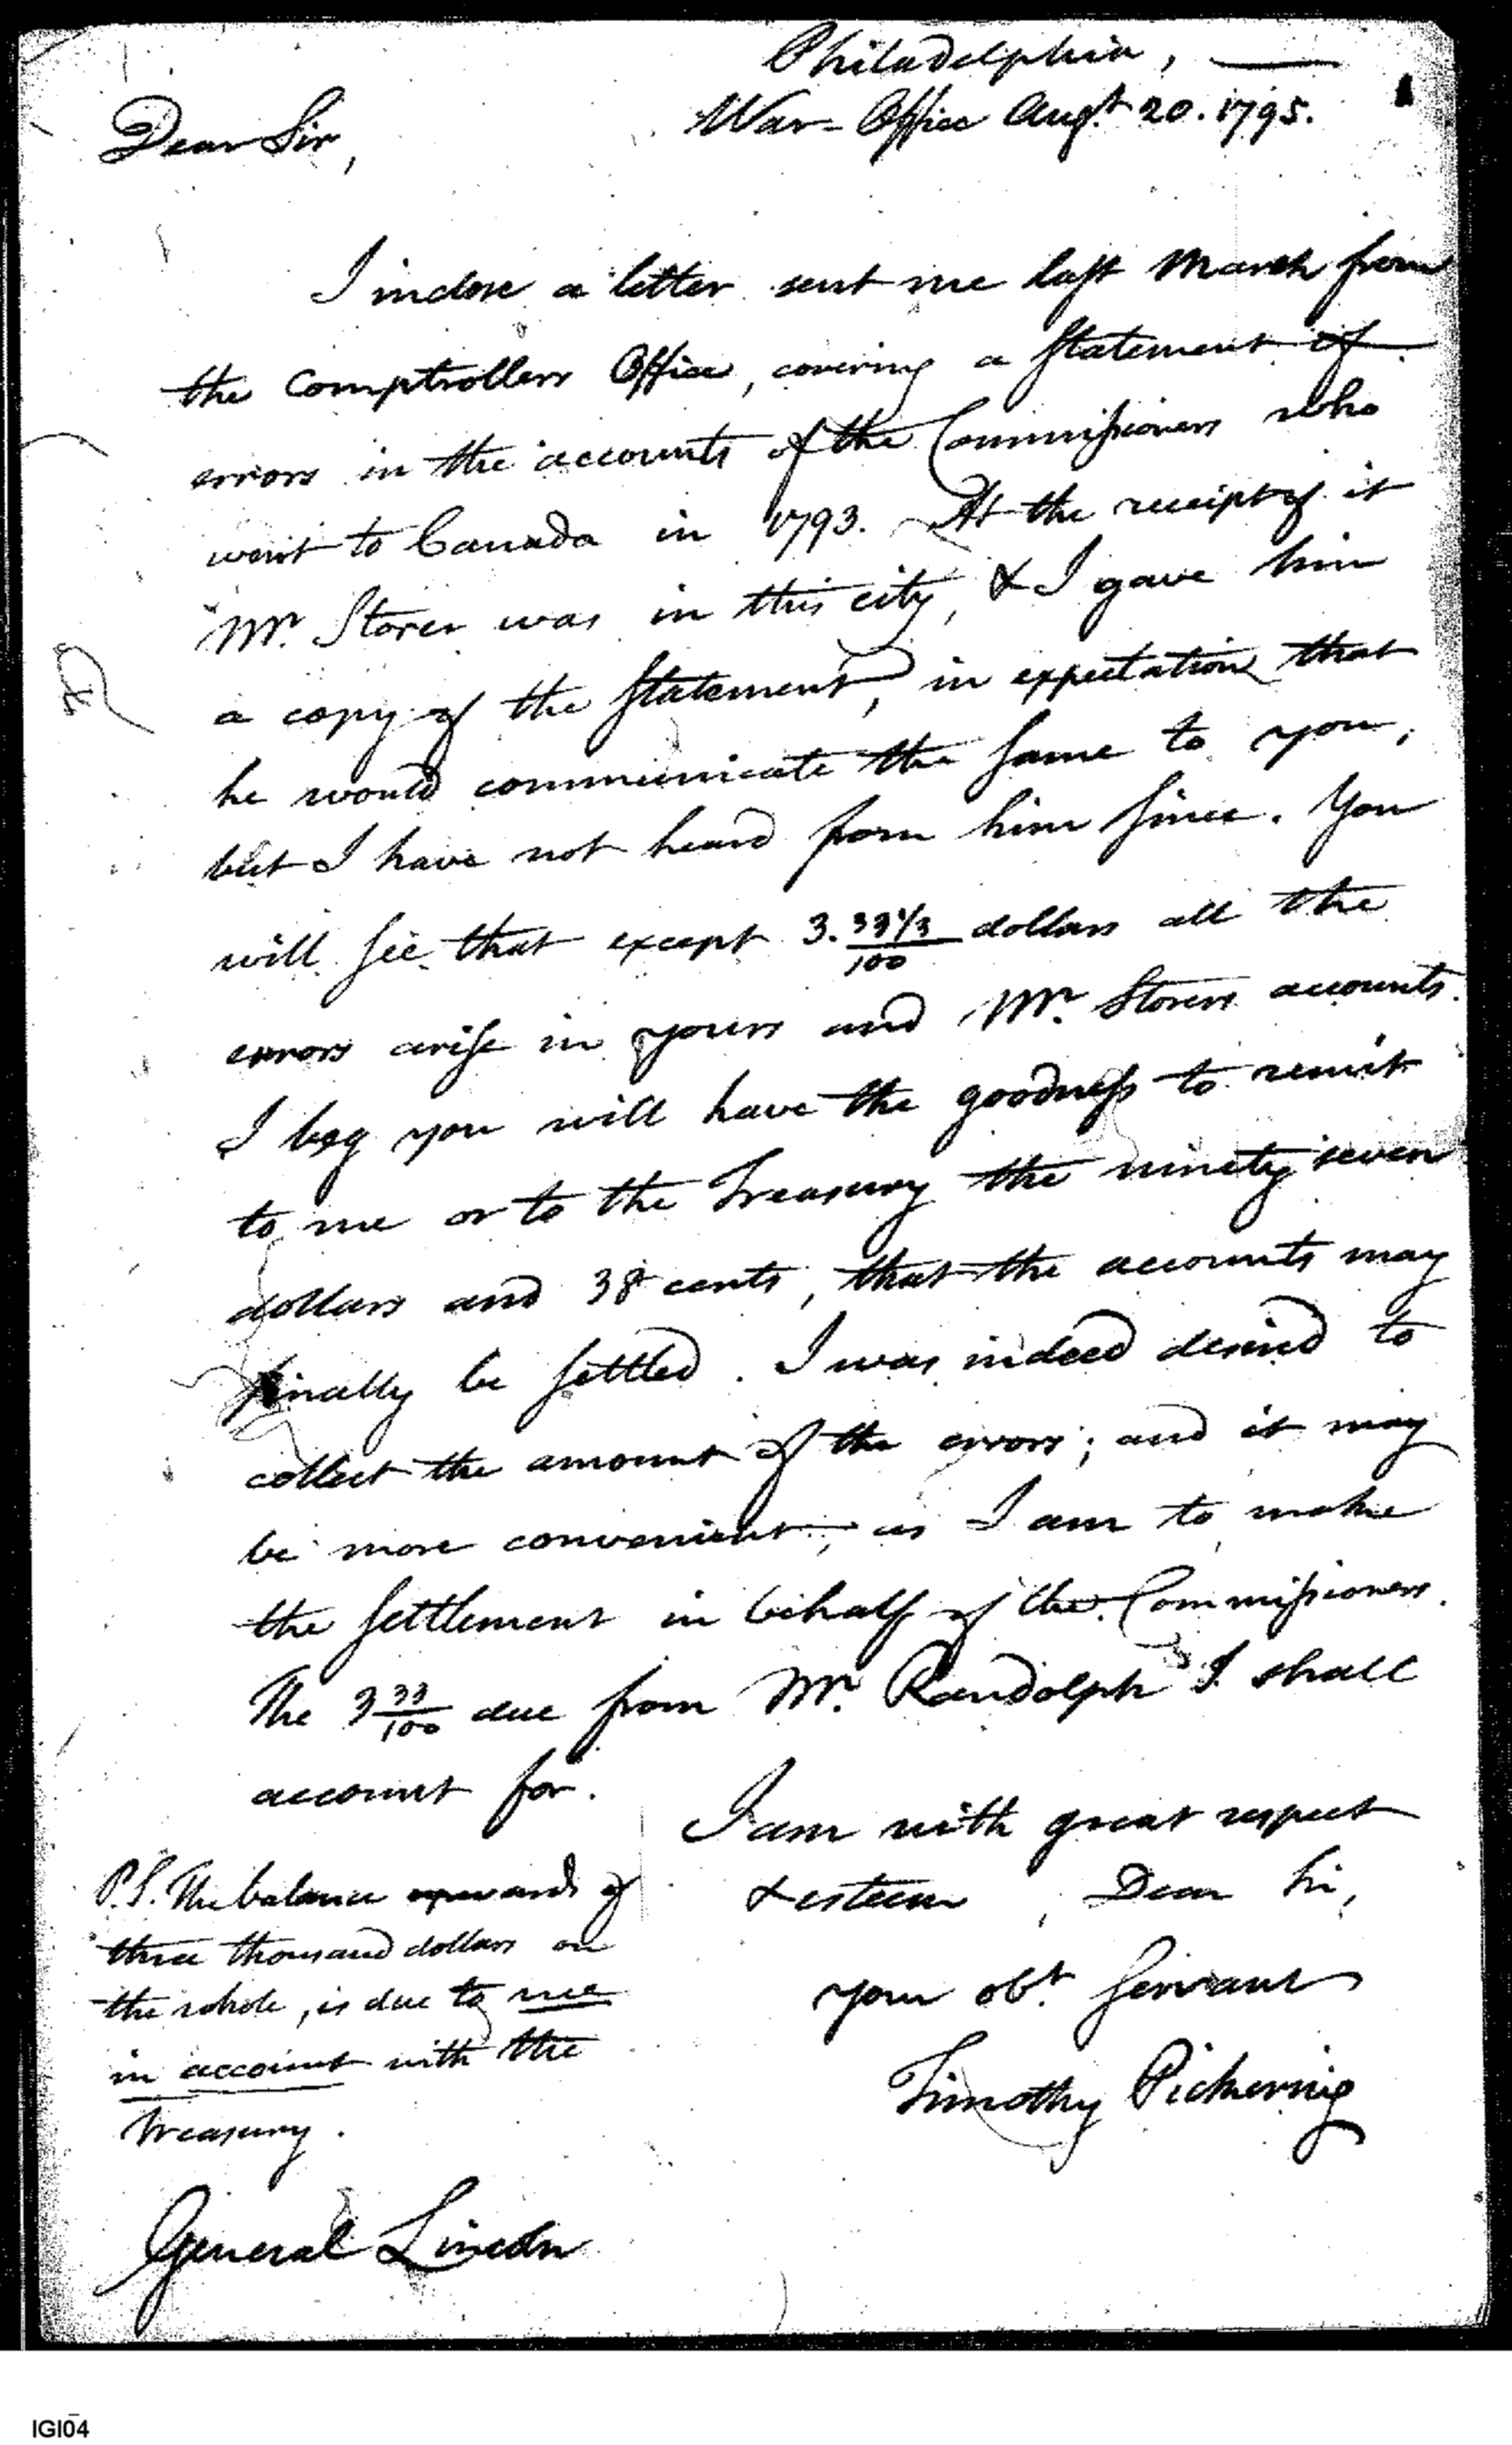 Philadelphia,
War-Office Augt. 20. 1795.
Dear Sir,
I inclose a letter sent me last March from
the Comptrollers Office, covering a statement of
errors in the accounts of the Commissioners who
went to Canada in 1793. At the receipt of it
Mr. Storer was in this city, & I gave him
a copy of the statement, in expectation that
he would communicate the same to you,
but I have not heard from him since. You
will see that except 3. 33 1/3/100 dollars all the
errors arise in yours and Mr. Storers accounts.
I beg you will have the goodness to remit
to me or to the Treasury the ninety seven
dollars and 38 cents, that the accounts may
finally be settled. I was indeed desired to
collect the amount of the errors; and it may
be more convenient, as I am to make
the settlement in behalf of the Commissioners.
The 3 33/100 due from Mr. Randolph I shall
account for.
I am with great respect
& esteem, Dear Sir,
your obt. servant
Timothy Pickering
P.S. The balance upwards of
three thousand dollars on
the whole, is due to me
in account with the
Treasury.
General Lincoln
IGI04